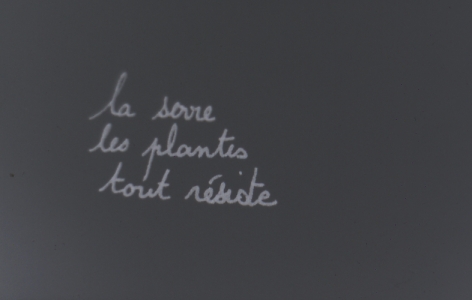 la serre
les plantes
tout résiste